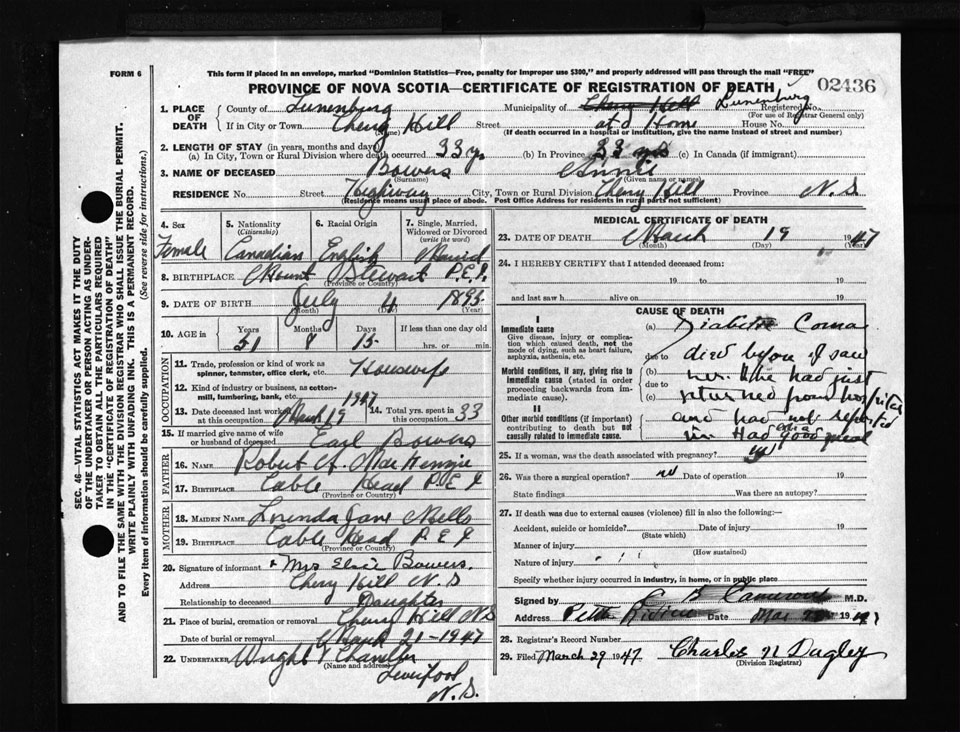 FORM 6
This form if placed in an envelope, marked "Dominion Statistics—Free, penalty for improper use $300," and properly addressed will pass through the mail "FREE"
PROVINCE OF NOVA SCOTIA—CERTIFICATE OF REGISTRATION OF DEATH
02436
1. PLACE OF DEATH
County of Lunenburg Municipality of Cherry Hill Lunenburg Registered No.
(For use of Registrar General only)
If in City or Town Cherry Hill Street at Home House No.
(Name) (If death occurred in a hospital or institution, give the name instead of street and number)
2. LENGTH OF STAY (in years, months and days)
(a) In City, Town or Rural Division where death occurred 33 y. (b) In Province 33 yrs (c) In Canada (if immigrant)
3. NAME OF DECEASED Bowers Annie
(Surname) (Given name or names)
RESIDENCE No. Street Highway City, Town or Rural Division Cherry Hill Province N.S
(Residence means usual place of abode. Post Office Address for residents in rural parts not sufficient)
4. Sex Female
5. Nationality (Citizenship) Canadian
6. Racial Origin English
7. Single, Married, Widowed or Divorced (write the word) Married
8. BIRTHPLACE Mount Stewart P.E.I.
(Province or Country)
9. DATE OF BIRTH July 4 1895
(Month) (Day) (Year)
10. AGE in Years 51 Months 8 Days 15 If less than one day old hrs. or min.
OCCUPATION
11. Trade, profession or kind of work as spinner, teamster, office clerk, etc. Housewife
12. Kind of industry or business, as cotton-mill, lumbering, bank, etc.
13. Date deceased last worked at this occupation March 19 1947 14. Total yrs. spent in 33
15. If married give name of wife or husband of deceased Earl Bowers
FATHER
16. NAME Robert A. MacKenzie
17. BIRTHPLACE Cable Head P.E.I
(Province or Country)
MOTHER
18. MAIDEN NAME Lorinda Jane Mells
19. BIRTHPLACE Cable Head P E I
(Province or Country)
20. Signature of informant Mrs Elsie Bowers
Address Cherry Hill N.S
Relationship to deceased Daughter
21. Place of burial, cremation or removal Cherry Hill N.S
Date of burial or removal March 21-1947
22. UNDERTAKER Wright & Chandler
(Name and address)
Liverpool
N.S.
MEDICAL CERTIFICATE OF DEATH
23. DATE OF DEATH March 19 1947
(Month) (Day) (Year)
24. I HEREBY CERTIFY that I attended deceased from:
19 to 19
and last saw h alive on 19
CAUSE OF DEATH
I
Immediate cause
Give disease, injury or complication which caused death, not the mode of dying, such as heart failure, asphyxia, asthenia, etc.
Morbid conditions, if any, giving rise to immediate cause (stated in order proceeding backwards from immediate cause).
II
Other morbid conditions (if important) contributing to death but not causally related to immediate cause.
(a) Diabetic Coma
due to died before I saw
(b) her. She had just
due to
(c) returned from hospital
and had not reported
in. Had good
25. If a woman, was the death associated with pregnancy?
26. Was there a surgical operation? no Date of operation 19
State findings Was there an autopsy?
27. If death was due to external causes (violence) fill in also the following:—
Accident, suicide or homicide? Date of injury 19
(State which)
Manner of injury
(How sustained)
Nature of injury
Specify whether injury occurred in industry, in home, or in public place
Signed by Cameron M.D.
Address Petite Riviere Date Mar 1947
28. Registrar's Record Number
29. Filed March 29 1947 Charles N Dagley
(Division Registrar)
SEC. 46—VITAL STATISTICS ACT MAKES IT THE DUTY
OF THE UNDERTAKER OR PERSON ACTING AS UNDER-
TAKER TO OBTAIN ALL THE PARTICULARS REQUIRED
IN THE "CERTIFICATE OF REGISTRATION OF DEATH"
AND TO FILE THE SAME WITH THE DIVISION REGISTRAR WHO SHALL ISSUE THE BURIAL PERMIT.
WRITE PLAINLY WITH UNFADING INK. THIS IS A PERMANENT RECORD.
Every item of information should be carefully supplied. (See reverse side for instructions.)